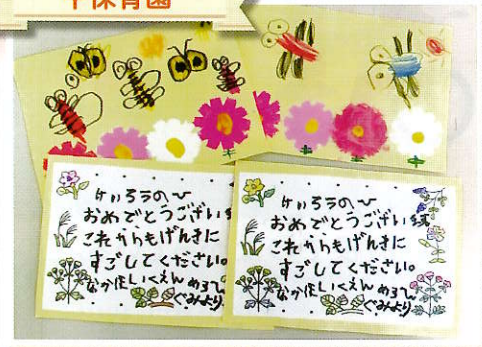 中保育園
けいろうのひ
おめでとうございます
これからもげんきに
すごしてください。
なかほいくえん めろん
ぐみより
けいろうのひ
おめでとうございます
これからもげんきに
すごしてください。
なかほいくえん めろん
ぐみより